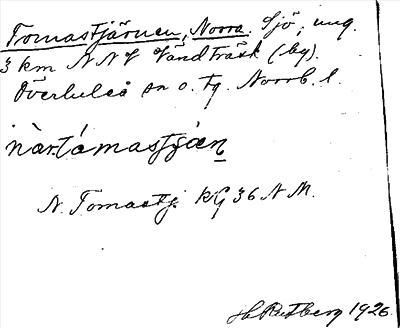 Tomastjärnen, Norra. Sjö, ung.
3 km NNV Vändträsk (by).
Överluleå sn o. tg. Norrb. l.
nàr.tómastjæn
N. Tomastj. KG 36 NM.
H. Rutberg 1926.